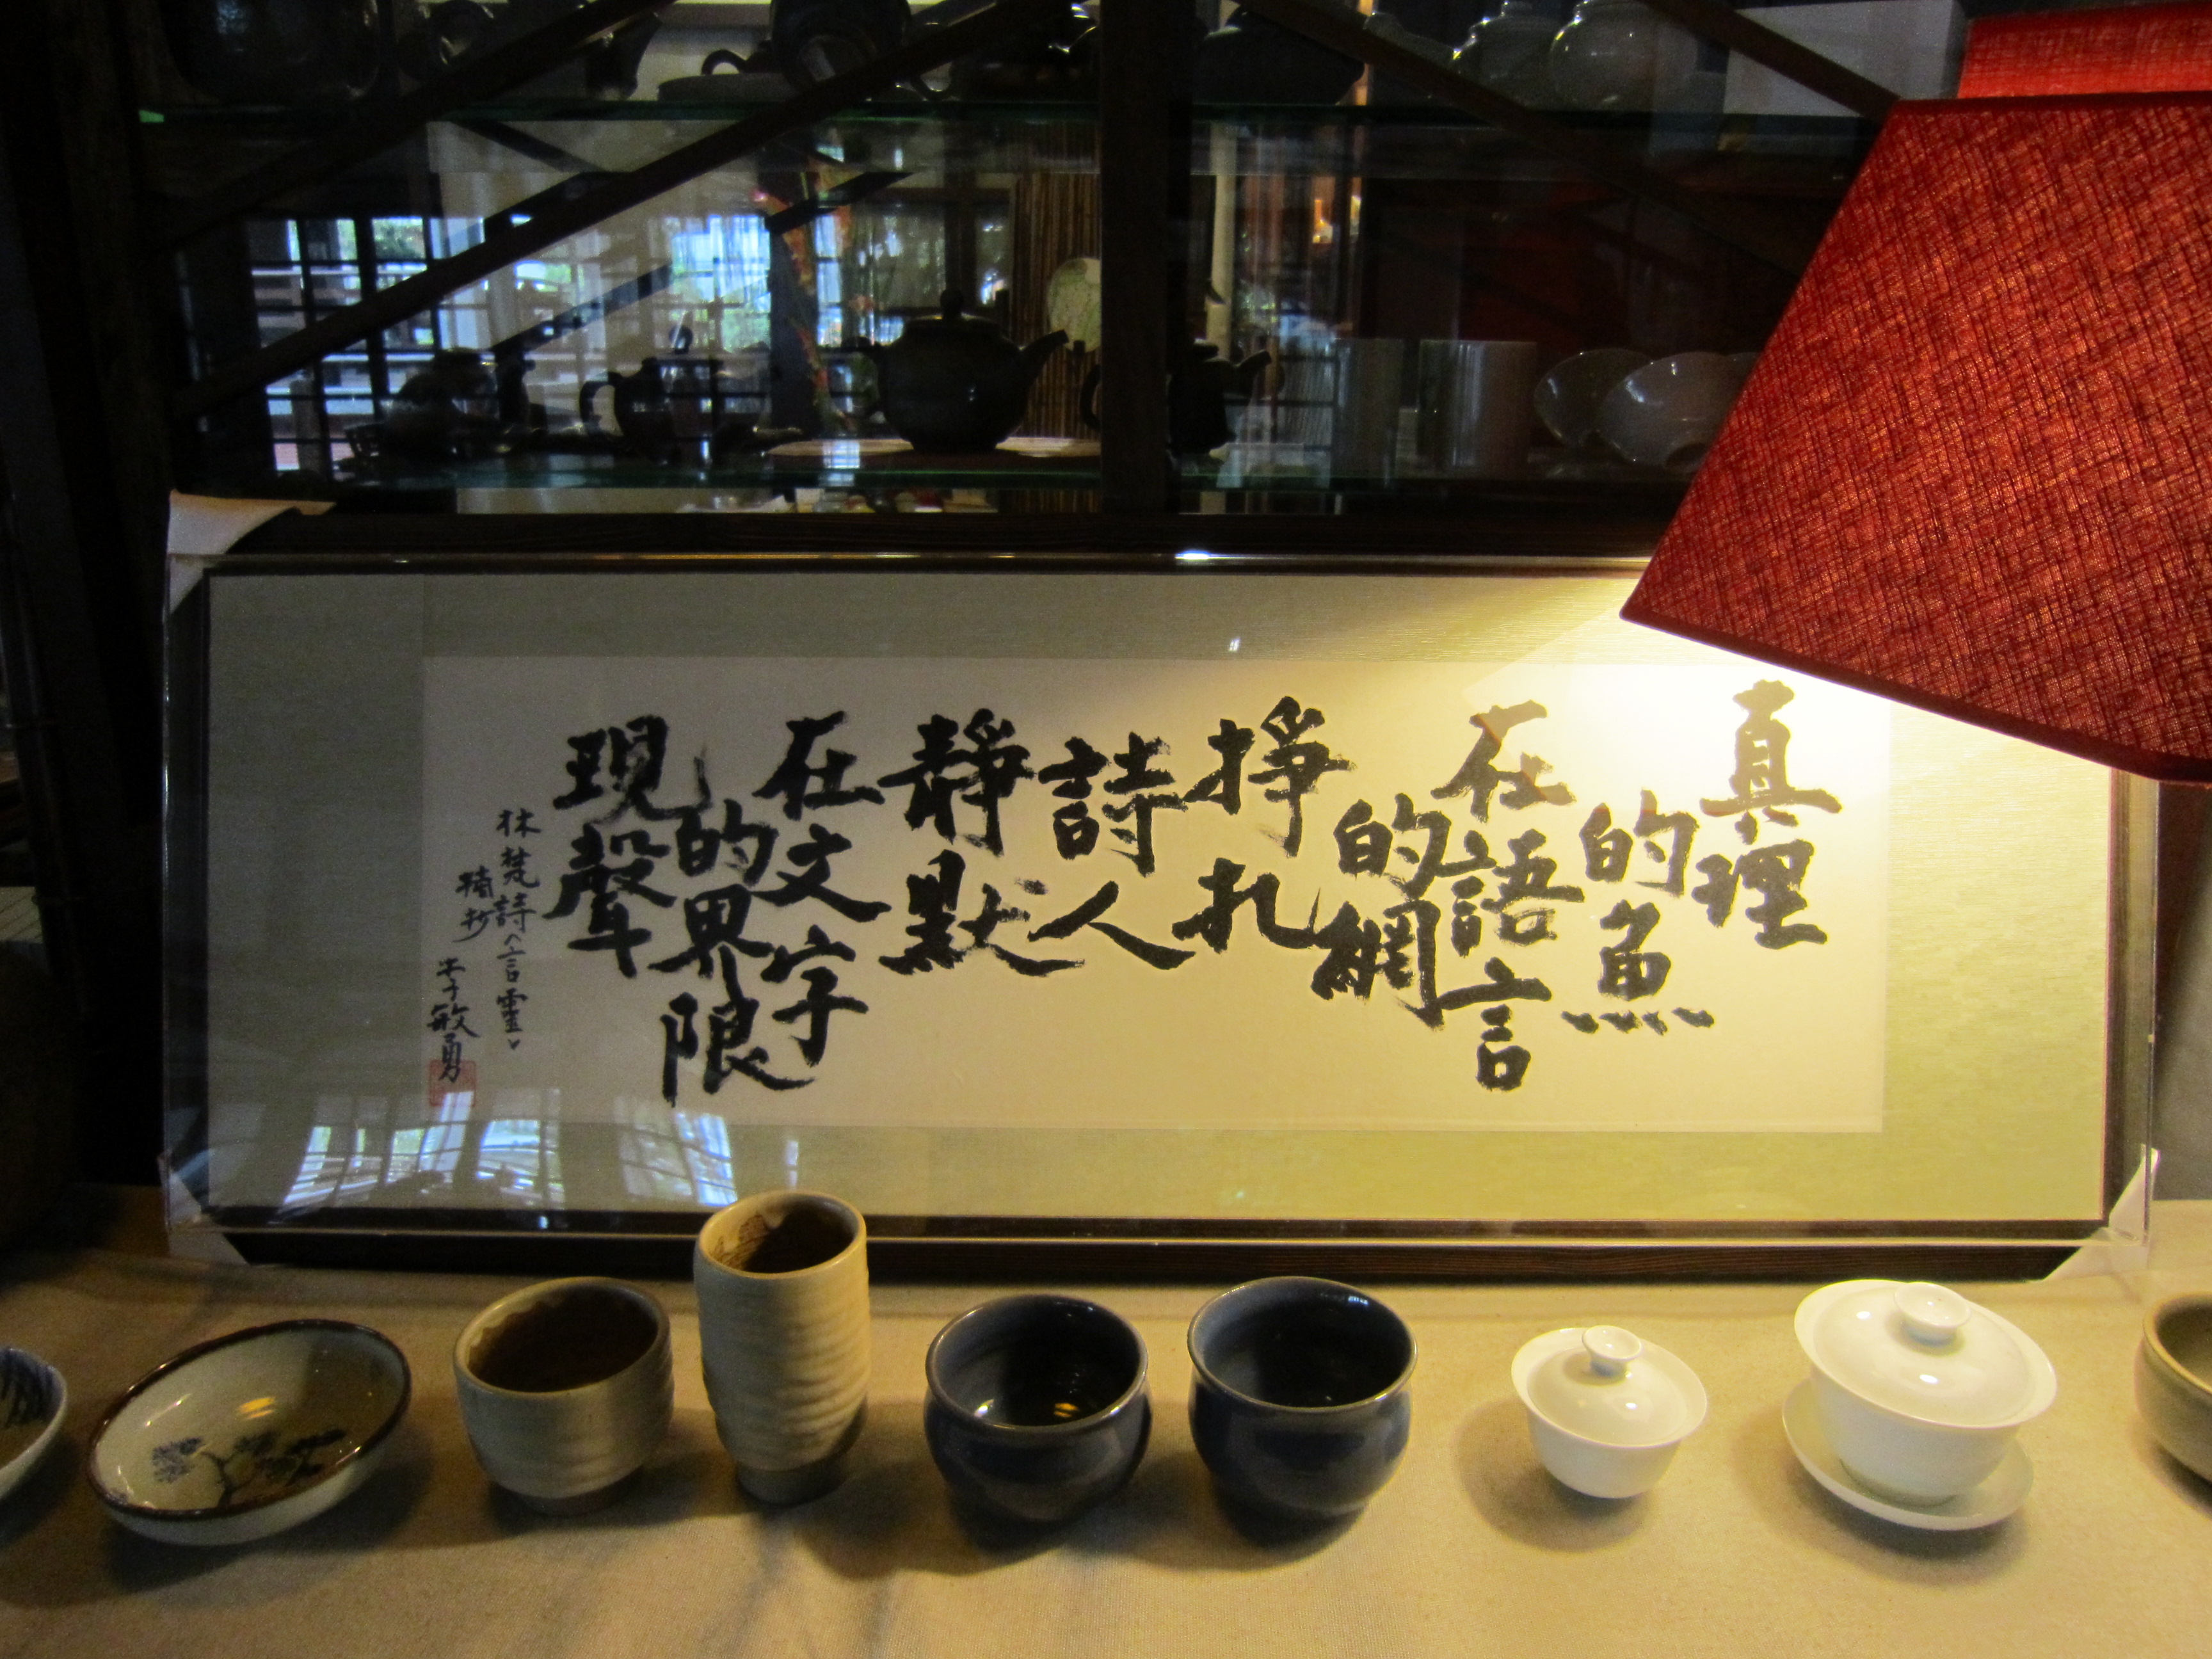 真理
的魚
在語言
的網
掙扎
詩人
靜默
在文字
的界限
現聲
林梵詩〈言靈〉
摘抄
李敏勇